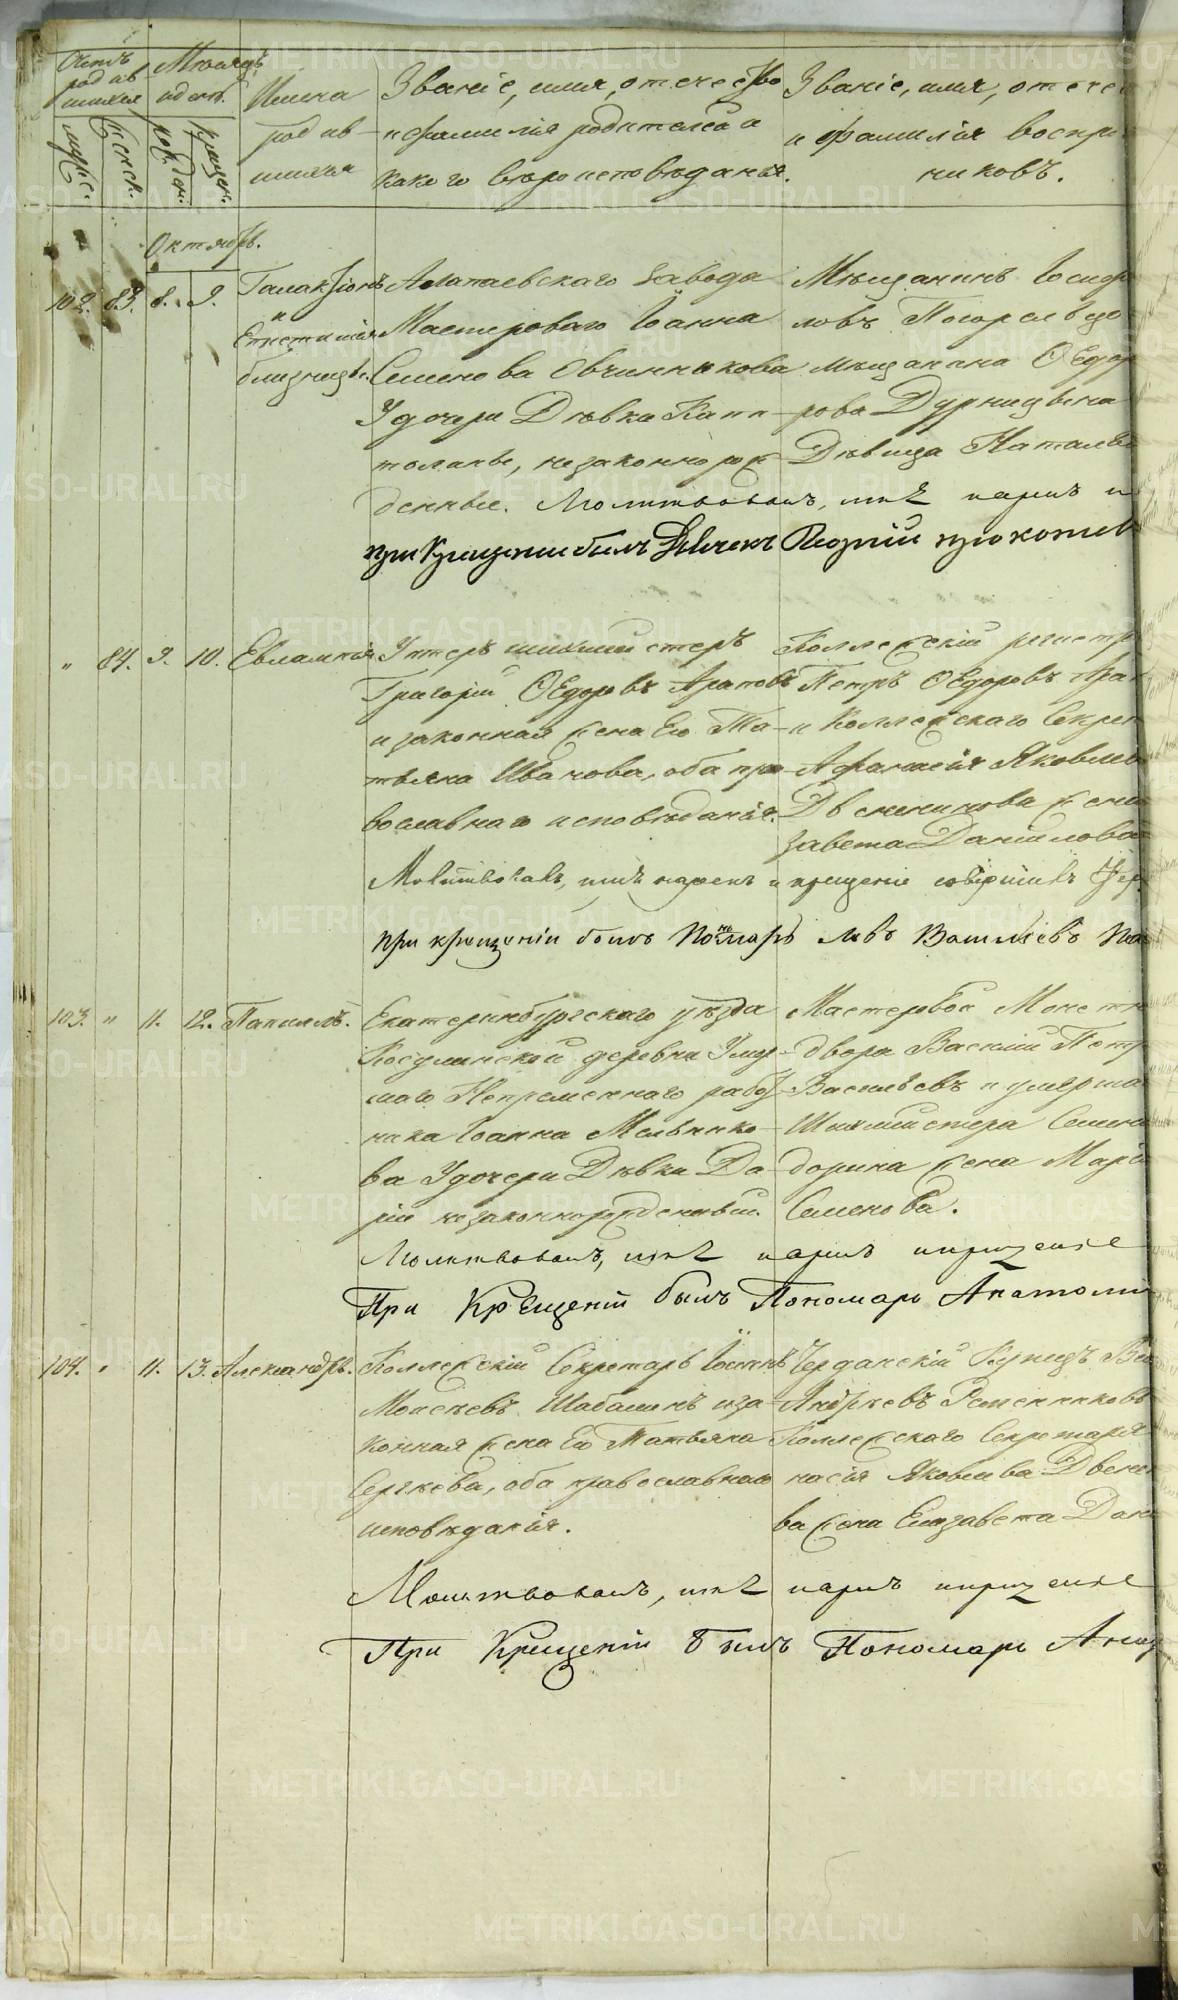 Счетъ родившихся
Мѣсяцъ и день.
Имена родившихся
Званіе, имя, отечество и фамилія родителей и какого вѣроисповѣданія.
Званіе, имя, отече
и фамилія воспри
никовъ.
мужс. женск. рожден. крещен.
Октябрь.
102. 83. 8. 9.
Галактіонъ
и
близнецы.
Алапаевскаго завода
Мастероваго Іоанна
Семенова Овчинникова
У дочери Дѣвки Капи-
толины, незаконнорож-
денные.
Мѣщанинъ Іосиф
ловъ
мѣщанина Ѳедор
рова Дурницына
Дѣвица Наталья
Молитвовалъ, имя нарекъ и
при Крещеніи былъ Дьячекъ
" 84. 9. 10. Евлампія
Унтеръ шихтмейстеръ
Григорій Ѳедоровъ Араповъ
и законная жена Его Та-
тьяна Иванова, оба пра-
вославнаго исповѣданія.
Коллежскій регистр
Петръ Ѳедоровъ Арап
и Коллежскаго Секрет
Афанасія Яковлев
жена
завета Даніилова
Молитвовалъ, имя нарекъ и крещеніе совершилъ
при крещеніи былъ Пономарь Левъ Васильевъ
103. " 11. 12.
Екатеринбургскаго уѣзда
Косулинской деревни Умер-
шаго Непремѣннаго работ-
ника Іоанна Мельнико-
ва У дочери Дѣвки Да-
ріи незаконнорожденный.
Мастеровой Монетн
двора Василій Петр
Васильевъ и умерша
Шихмейстера Семена
дорина жена Марья
Семенова.
Молитвовалъ, имя нарекъ и крещеніе
При Крещеніи былъ Пономарь Анатолій
104. " 11. 13. Александръ.
Коллежскій Секретарь Іоаннъ
Моисеевъ Шабалинъ и за-
конная жена Его Татьяна
Сергѣева, оба православнаго
исповѣданія.
Чердынскій Купецъ
Андреевъ Ременниковъ
Коллежскаго Секретаря
насія Яковлева
ва жена Елизавета Дани
Молитвовалъ, имя нарекъ и крещеніе
При Крещеніи былъ Пономарь
METRIKI.GASO-URAL.RU